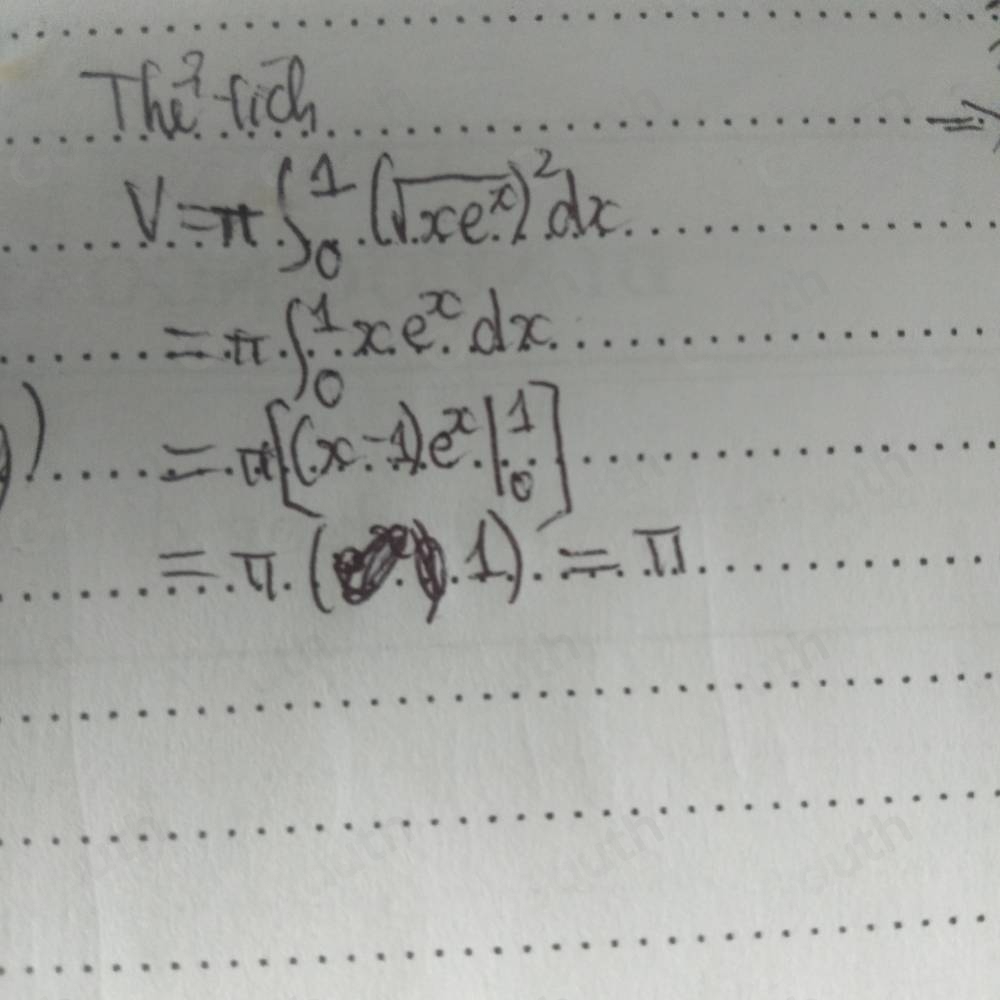 Thể tích
V = π ∫₀¹ (√xeˣ)² dx
= π ∫₀¹ x eˣ dx
= π [(x - 1) eˣ |₀¹]
= π ( 1) = π